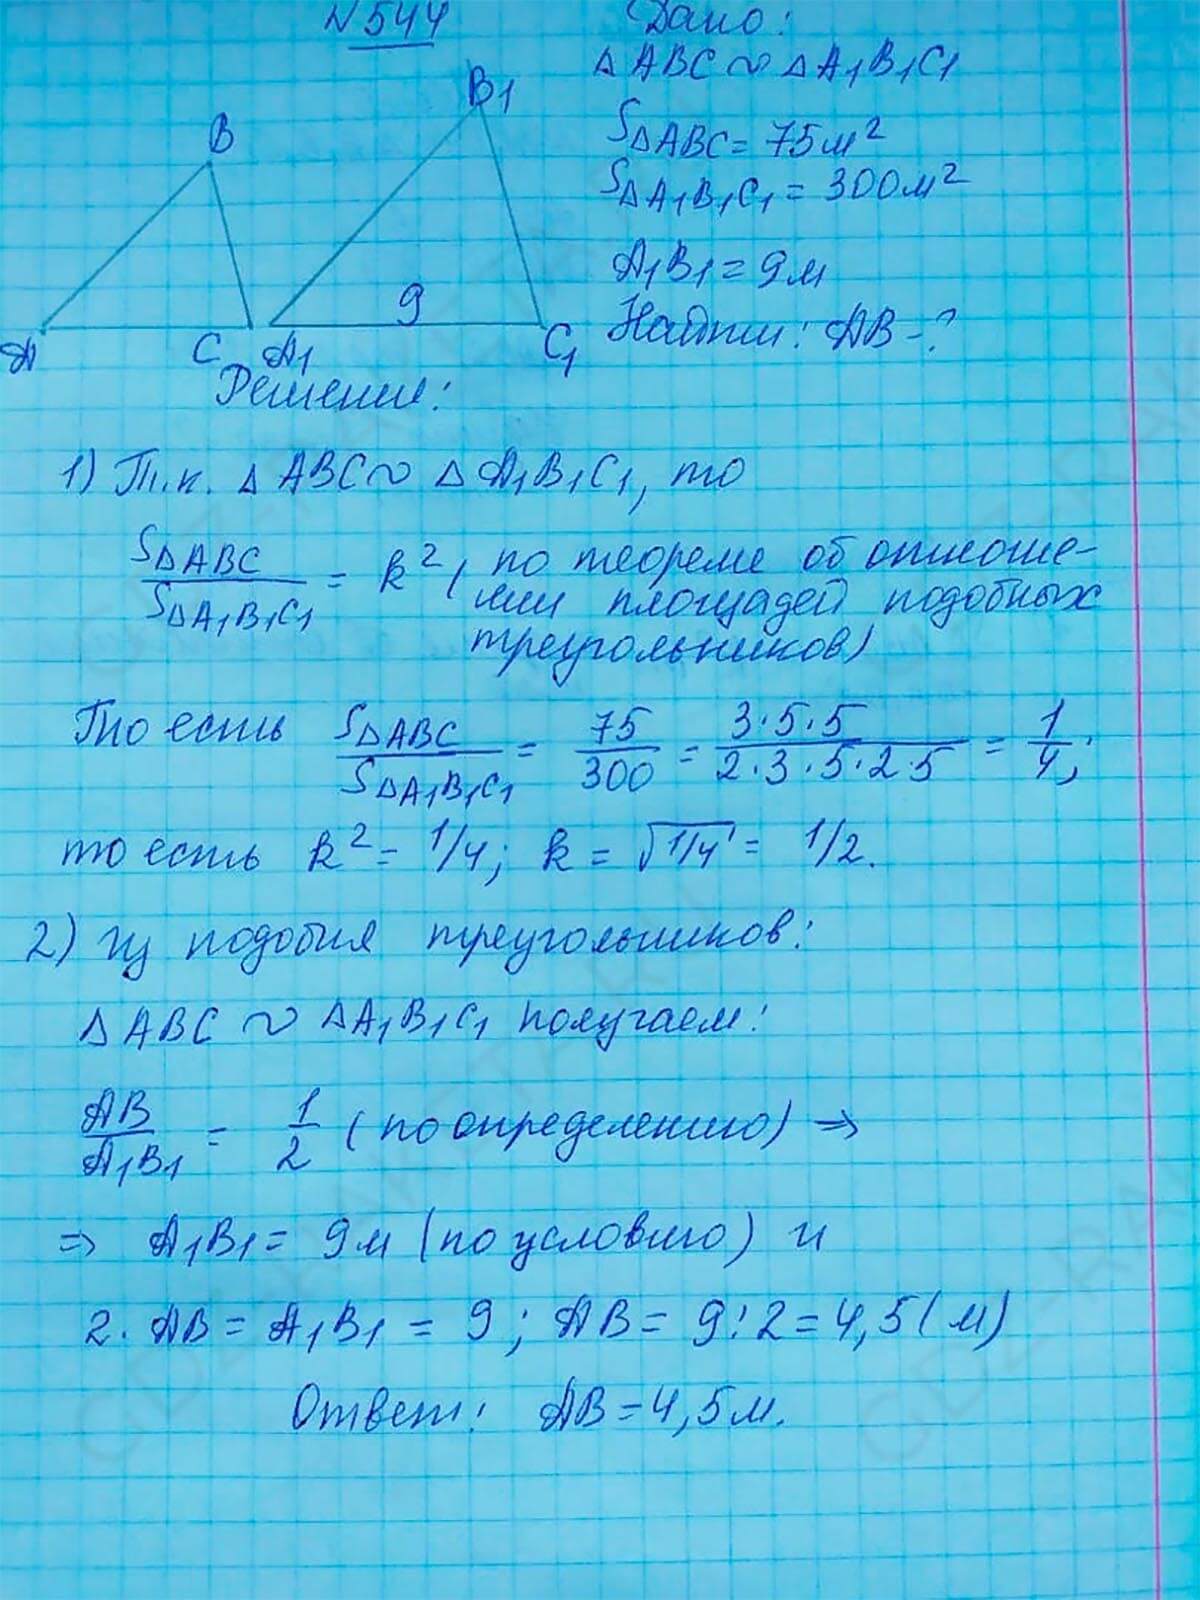 N544
Дано:
△ABC ∼ △A₁B₁C₁
S△ABC = 75м²
S△A₁B₁C₁ = 300м²
A₁B₁ = 9м
Найти: AB - ?
B
B₁
9
A
C
A₁
C₁
Решение:
1) Т.к. △ABC ∼ △A₁B₁C₁, то
S△ABC / S△A₁B₁C₁ = k² (по теореме об отноше-
нии площадей подобных
треугольников)
То есть S△ABC / S△A₁B₁C₁ = 75/300 = 3·5·5 / 2·3·5·2·5 = 1/4;
то есть k² = 1/4; k = √1/4 = 1/2.
2) Из подобия треугольников:
△ABC ∼ △A₁B₁C₁ получаем:
AB / A₁B₁ = 1/2 (по определению) ⇒
⇒ A₁B₁ = 9м (по условию) и
2·AB = A₁B₁ = 9; AB = 9:2 = 4,5(м)
Ответ: AB = 4,5м.